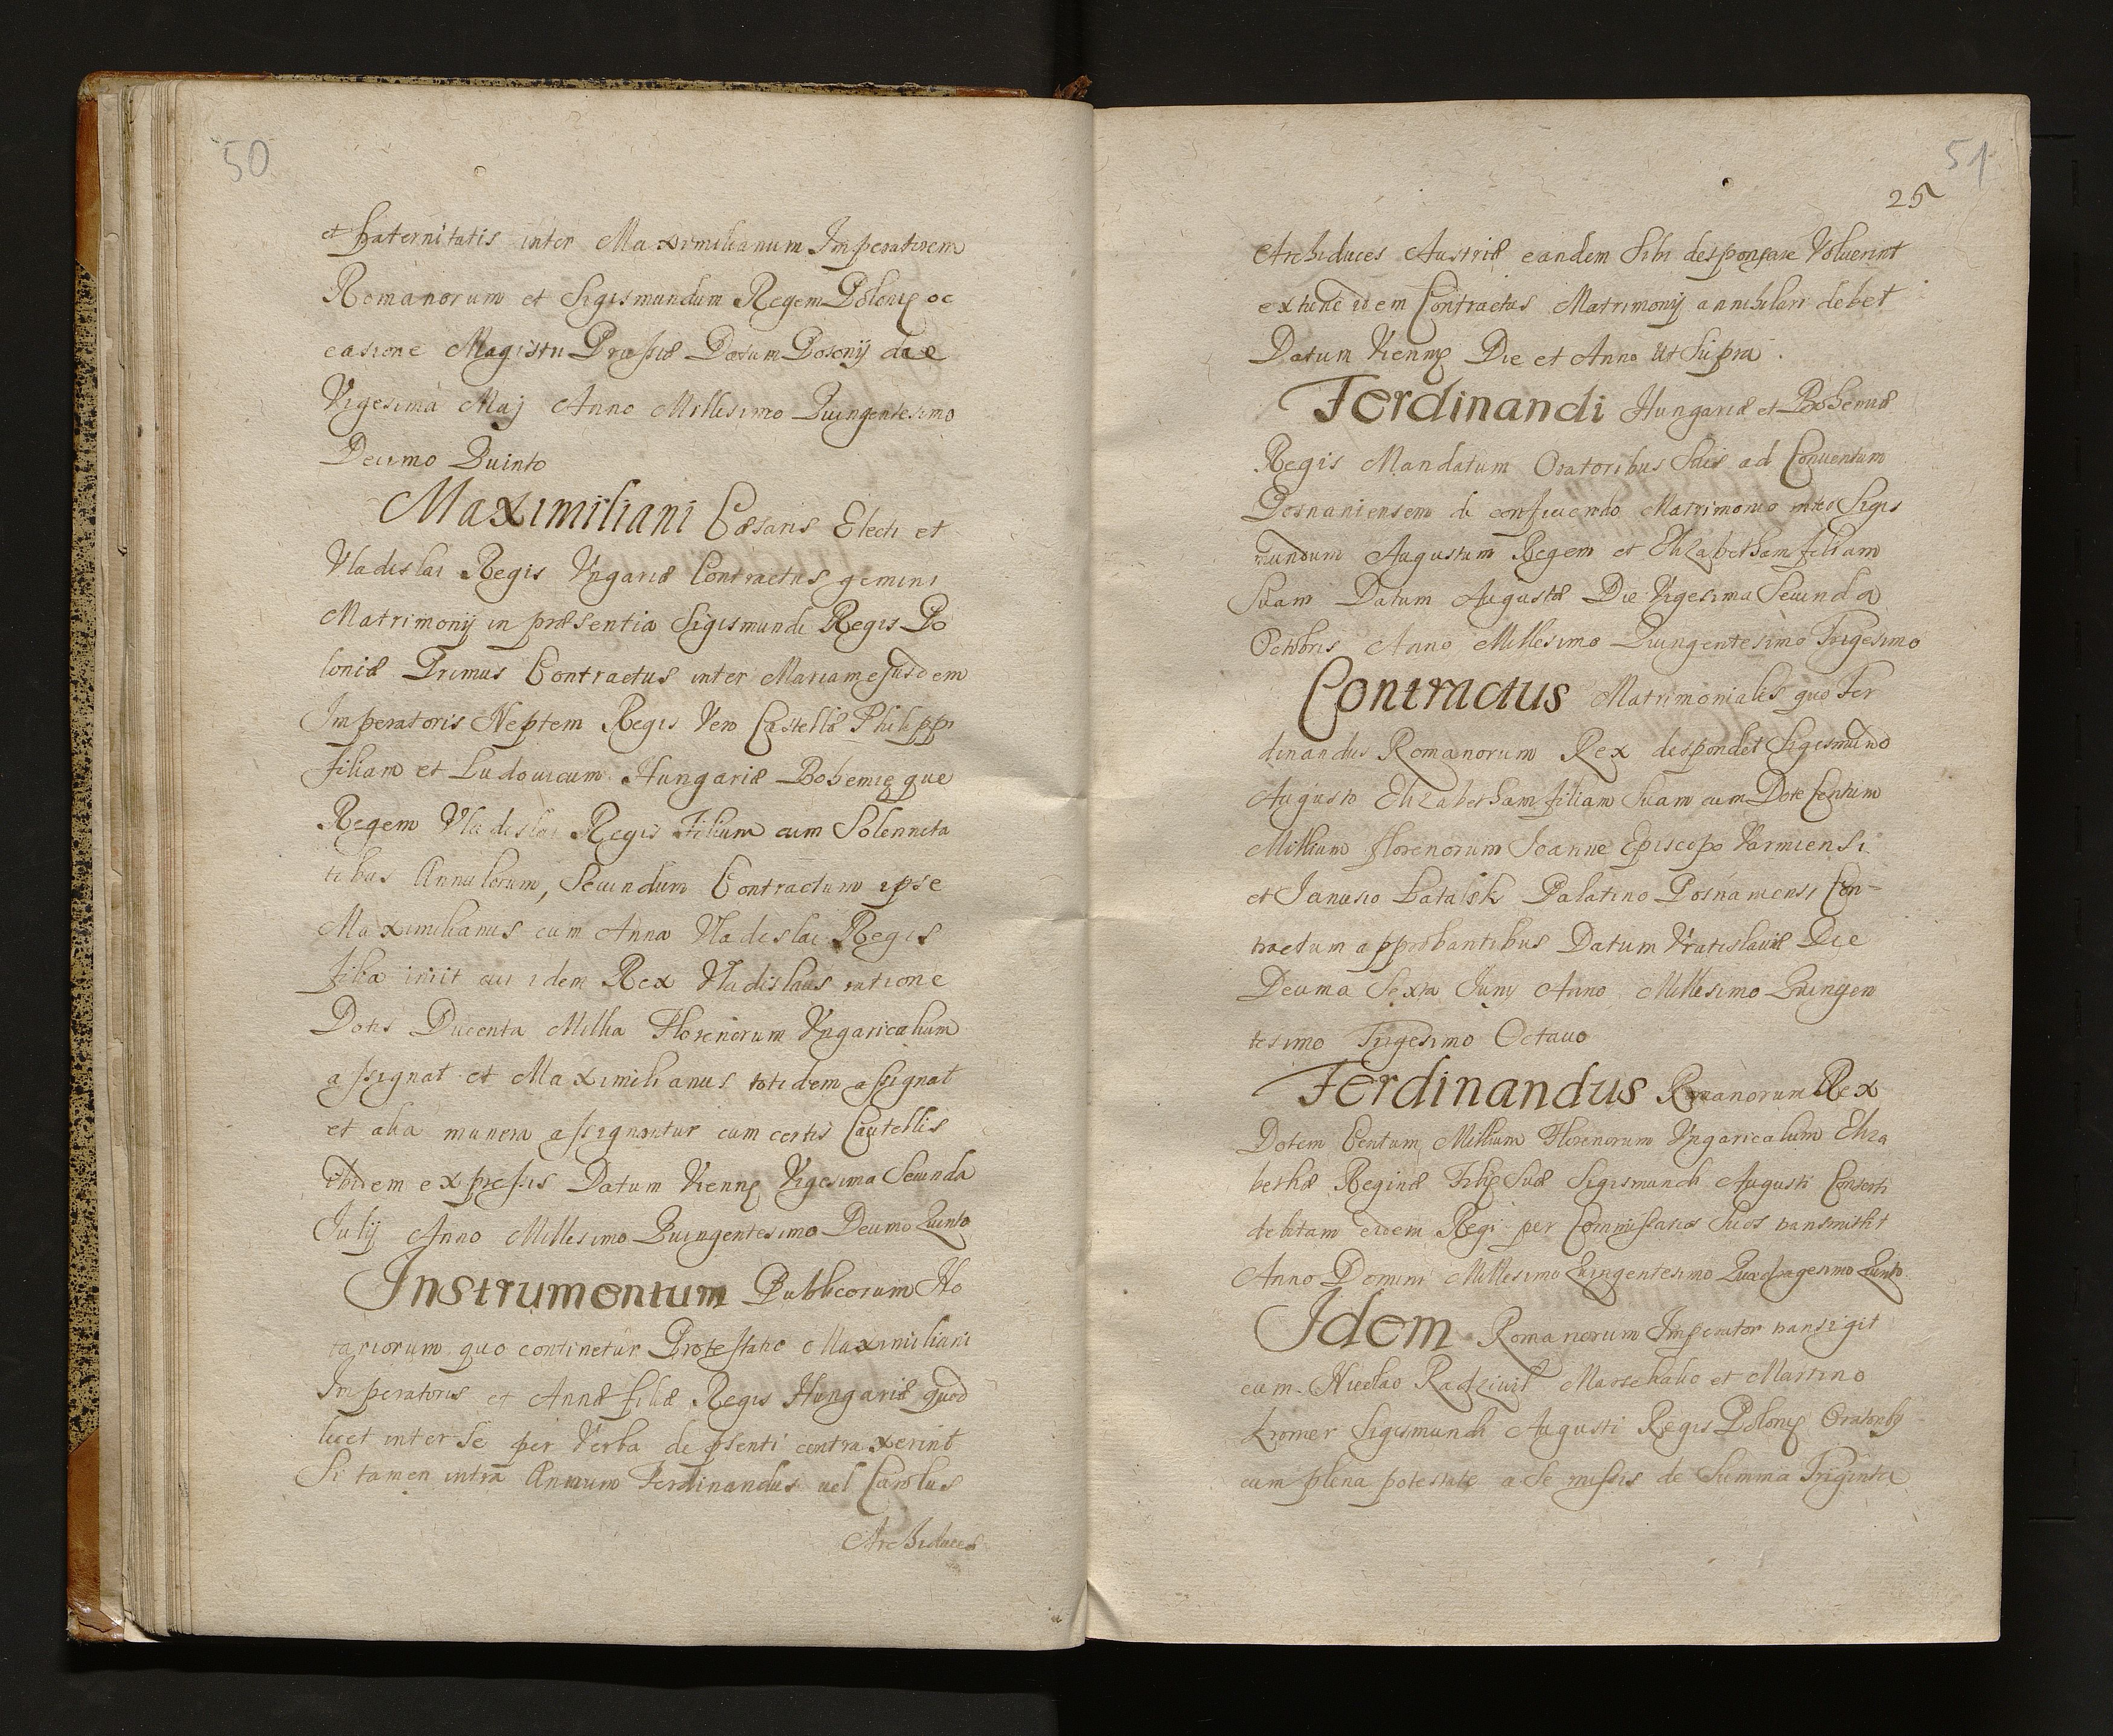 50
et fraternitatis inter Maximilianum Imperatorem
Romanorum et Sigismundum Regem Polonię oc
casione Magistri Prussiæ Datum Posonij die
Vigesima Maj Anno Millesimo Quingentesimo
Decimo Quinto
Maximiliani Cæsaris Electi et
Vladislai Regis Vngariæ Contractus gemini
Matrimonij in præsentia Sigismundi Regis Po
loniæ Primus Contractus inter Mariam ejusdem
Imperatoris Neptem Regis Vero Castellæ Philippi
filiam et Ludouicum Hungariæ Bohemię que
Regem Vladislai Regis Filium cum Solennita
tibus Annulorum, Secundum Contractum ipse
Maximilianus cum Anna Vladislai Regis
filia iniit cui idem Rex Vladislaus ratione
Dotis Ducenta Millia Florenorum Vngaricalium
assignat et Maximilianus totidem assignat
et alia munera assignantur cum certis Cautellis
ibidem expressis Datum Viennę Vigesima Secunda
Julij Anno Millesimo Quingentesimo Decimo Quinto
Instrumentum Publicorum No
tariorum quo continetur Protestatio Maximiliani
Imperatoris et Annæ filiæ Regis Hungariæ quod
licet inter Se per Verba de psenti contraxerint
Si tamen intra Annum Ferdinandus vel Carolus
Archiduces
51
25
Archiduces Austriæ eandem Sibi desponsare Voluerint
extunc idem Contractus Matrimonij annihilari debet
Datum Viennę Die et Anno Ut Supra.
Ferdinandi Hungariæ et Bohemiæ
Regis Mandatum Oratoribus Suis ad Conuentum
Posnaniensem de conficiendo Matrimonio inter Sigis
mundum Augustum Regem et Elizabetham filiam
Suam Datum Augustæ Die Vigesima Secunda
Octobris Anno Millesimo Quingentesimo Trigesimo
Contractus Matrimonialis quo Fer
dinandus Romanorum Rex despondet Sigismundo
Augusto Elizabetham filiam Suam cum Dote Centum
Millium florenorum Joanne Episcopo Varmiensi
et Janusio Latalski Palatino Posnaniensi Con-
tractum approbantibus Datum Vratislauiæ Die
Decima Sexta Juny Anno Millesimo Quingen
tesimo Trigesimo Octauo
Ferdinandus Romanorum Rex
Dotem Centum Millium Florenorum Vngaricalium Eliza
bethæ Reginæ Filię Suæ Sigismundi Augusti Consorti
debitam eidem Regi per Commissarios Suos transmisit
Anno Domini Millesimo Quingentesimo Quadragesimo Quinto
Idem Romanorum Imperator transigit
cum Nicolao Radziuil Marschalco et Martino
Kromer Sigismundi Augusti Regis Polonię Oratoriby
cum plena potestate a Se missis de Summa Triginta